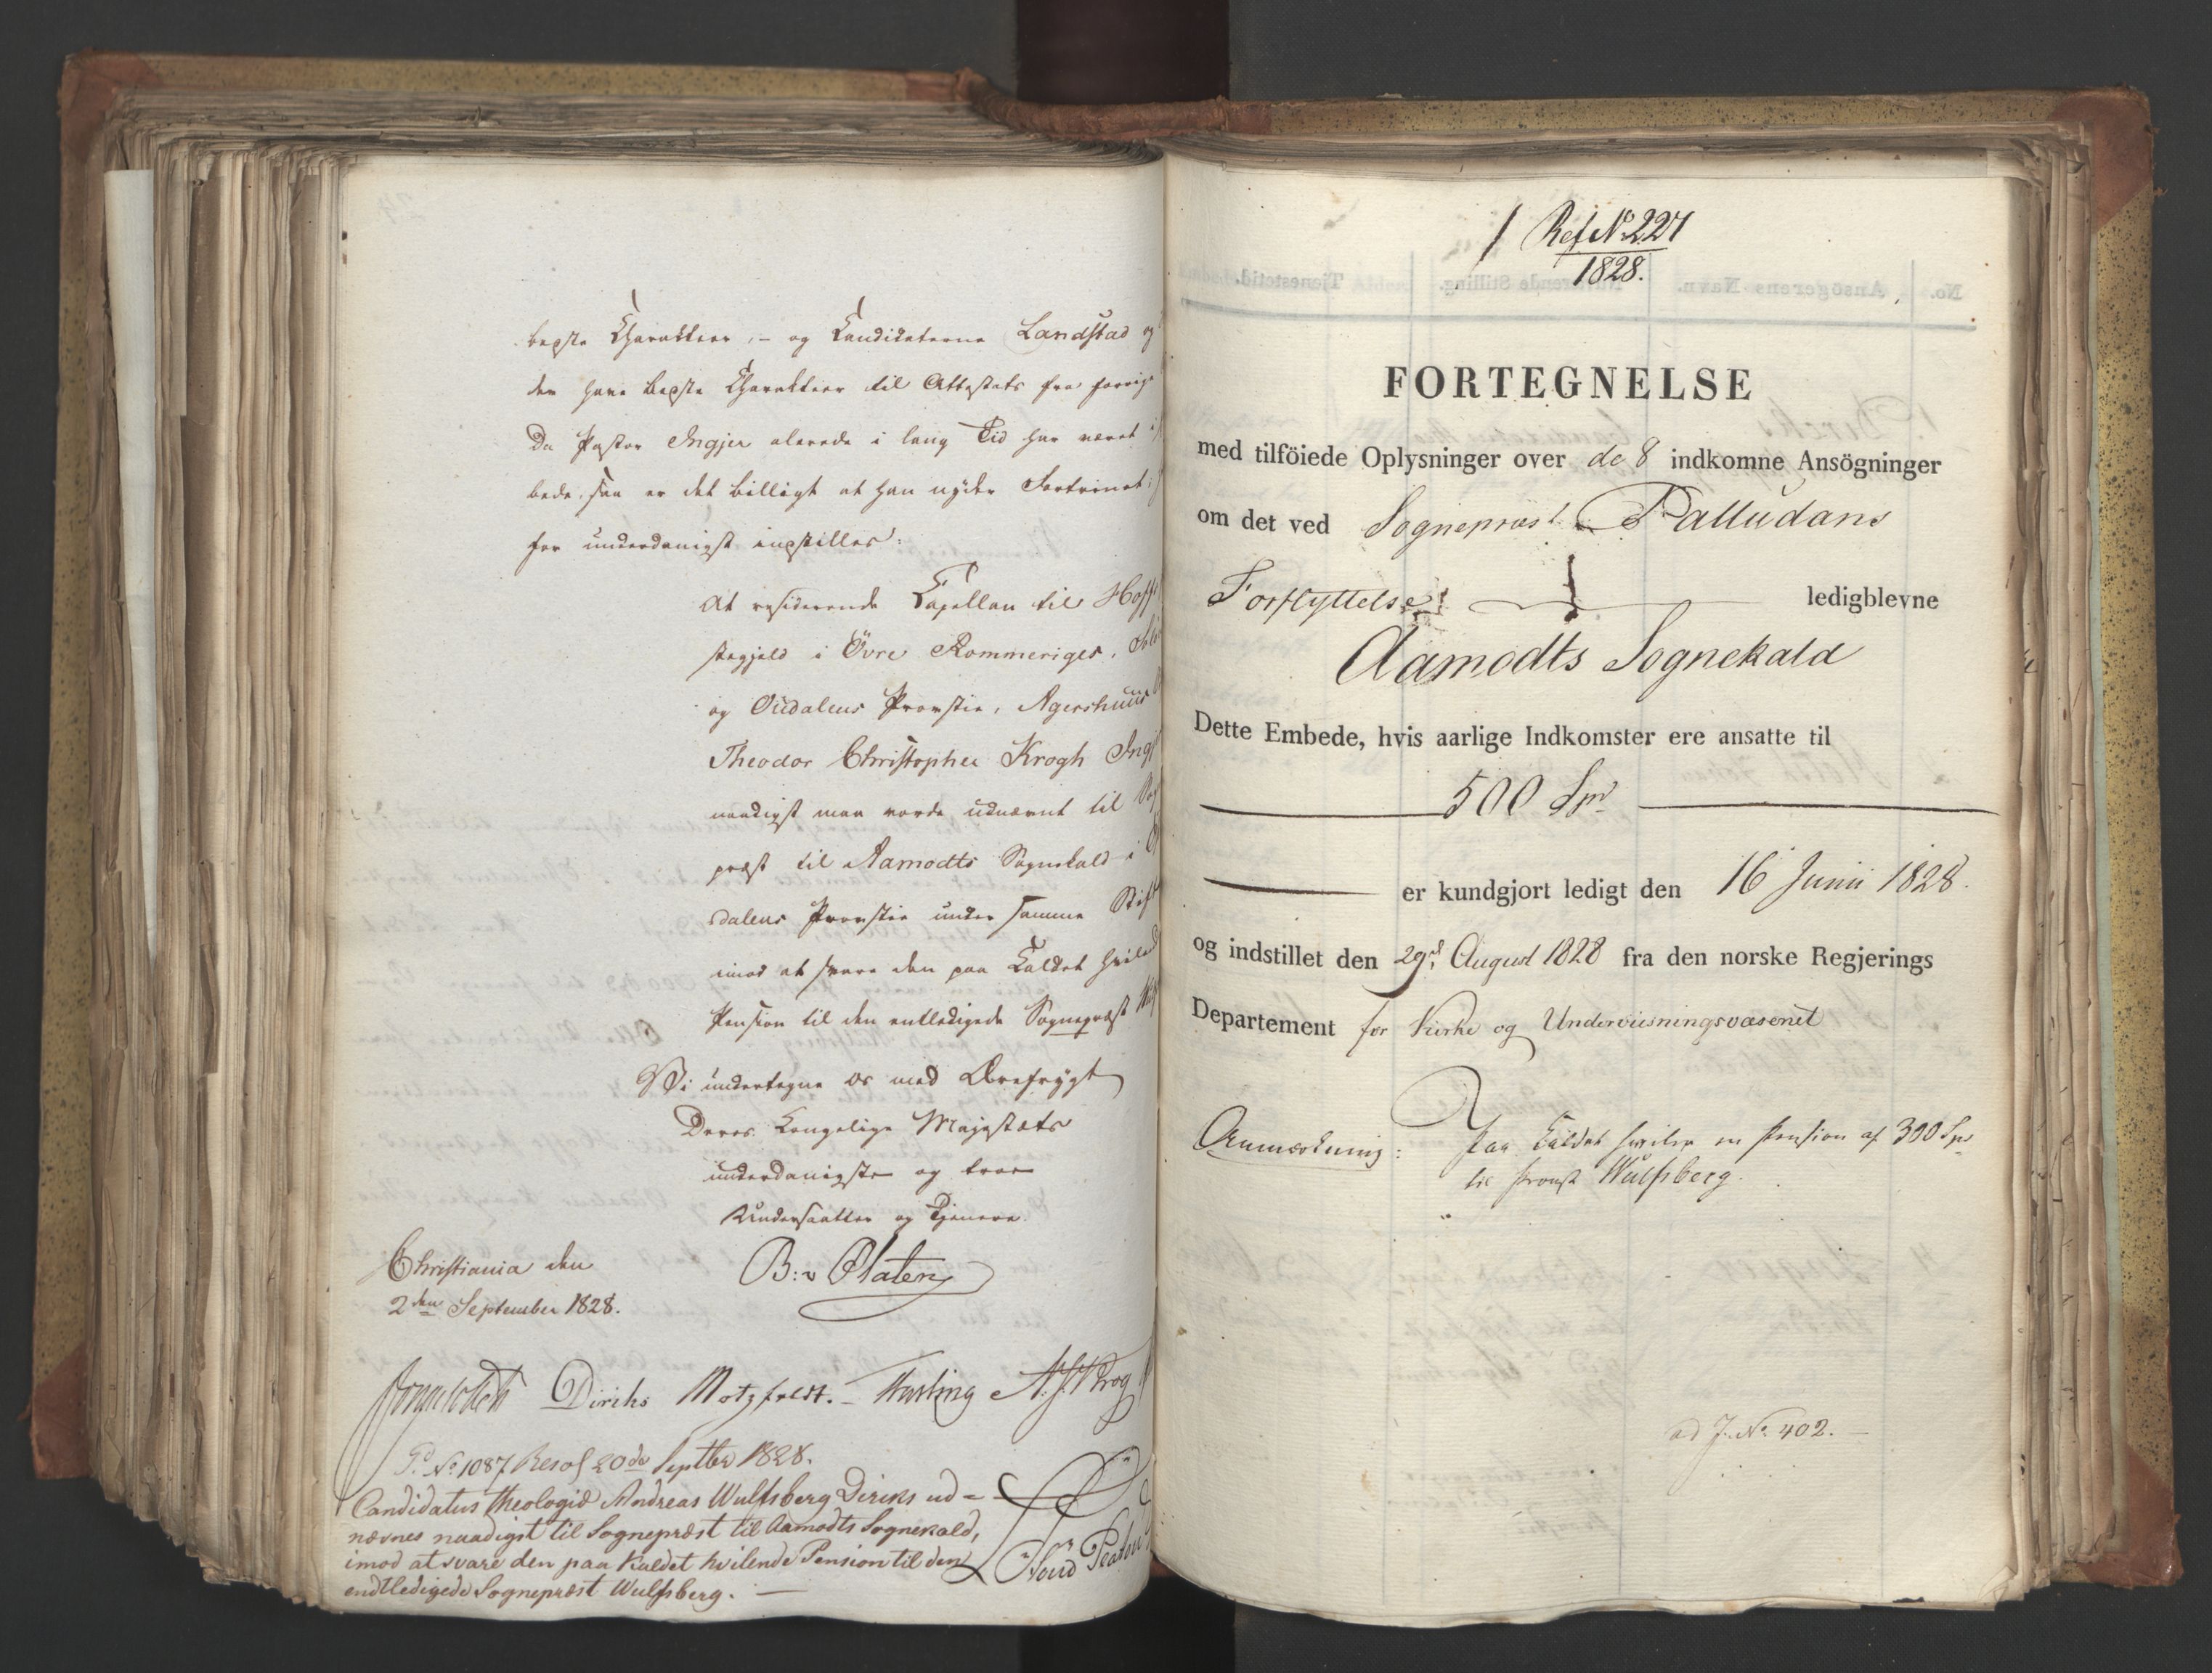 bedste Charakteer, – og Candidaterne Landstad og
der have bedste Charakteer til Attestats fra forrige
Da Pastor Ingjer allerede i lang Tid har været
bede, saa er det billigt at han nyder Fortrinet;
for underdanigst indstilles:
At residerende Capellan til Hoff
stegjeld i Övre Rommeriges,
og Oudalens Provstie, Agershuus
Theodor Christopher Krogh Ing
naadigst maa vorde udnævnt til Sog
præst til Aamodts Sognekald i
dalens Provstie under samme Stift
imod at svare den paa Kaldet hvilend
Pension til den entledigede Sognepræst
Vi undertegne os med Ærefrygt
Deres Kongelige Majestæts
underdanigste og troe
Undersaatter og Tjenere.
Christiania den
2den September 1828.
B: v Platen
Diriks Motzfeldt. – Fasting
P. No 1087 Resol 20de Septbr 1828.
Candidatus theologiæ Andreas Wulfsberg Diriks ud-
nævnes naadigst til Sognepræst til Aamodts Sognekald,
imod at svare den paa Kaldet hvilende Pension til den
endtledigede Sognepræst Wulfsberg. —
Ref No 227
1828.
FORTEGNELSE
med tilföiede Oplysninger over de 8 indkomne Ansögninger
om det ved Sognepræst Palludans
Forflyttelse ledigblevne
Aamodts Sognekald
Dette Embede, hvis aarlige Indkomster ere ansatte til
500 Spd
er kundgjort ledigt den 16 Junii 1828.
og indstillet den 29d August 1828 fra den norske Regjerings
Departement for Kirke og Underviisningsvæsenet
Anmærkning: Paa Kaldet hviler en Pension af 300 Spd
til Provst Wulfsberg.
ad J. No 402. —